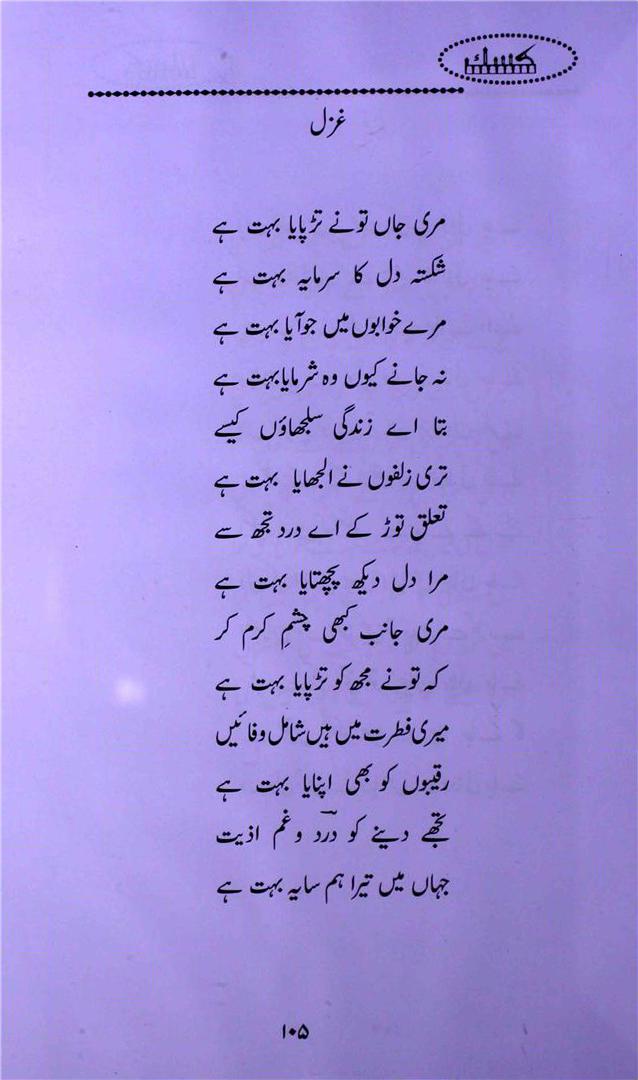 کسک
غزل
مری جاں تو نے تڑپایا بہت ہے
شکستہ دل کا سرمایہ بہت ہے
مرے خوابوں میں جو آیا بہت ہے
نہ جانے کیوں وہ شرمایا بہت ہے
بتا اے زندگی سلجھاؤں کیسے
تری زلفوں نے الجھایا بہت ہے
تعلق توڑ کے اے درد تجھ سے
مرا دل دیکھ پچھتایا بہت ہے
مری جانب کبھی چشمِ کرم کر
کہ تو نے مجھ کو تڑپایا بہت ہے
میری فطرت میں ہیں شامل وفائیں
رقیبوں کو بھی اپنایا بہت ہے
تجھے دینے کو دردؔ و غم اذیت
جہاں میں تیرا ہم سایہ بہت ہے
۱۰۵